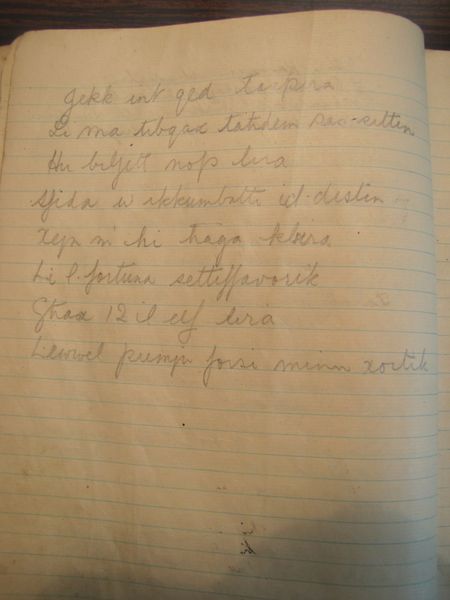 Jekk int qed taspira
Li ma tibqax tahdem sas-sittin
Hu biljett nofs lira
Sfida u ikkumbatti id-destin
Xejn m'hi haga kbira
Li l-fortuna settiffavorik
Ghax 12 il elf lira
L-ewwel premju forsi minn xortik